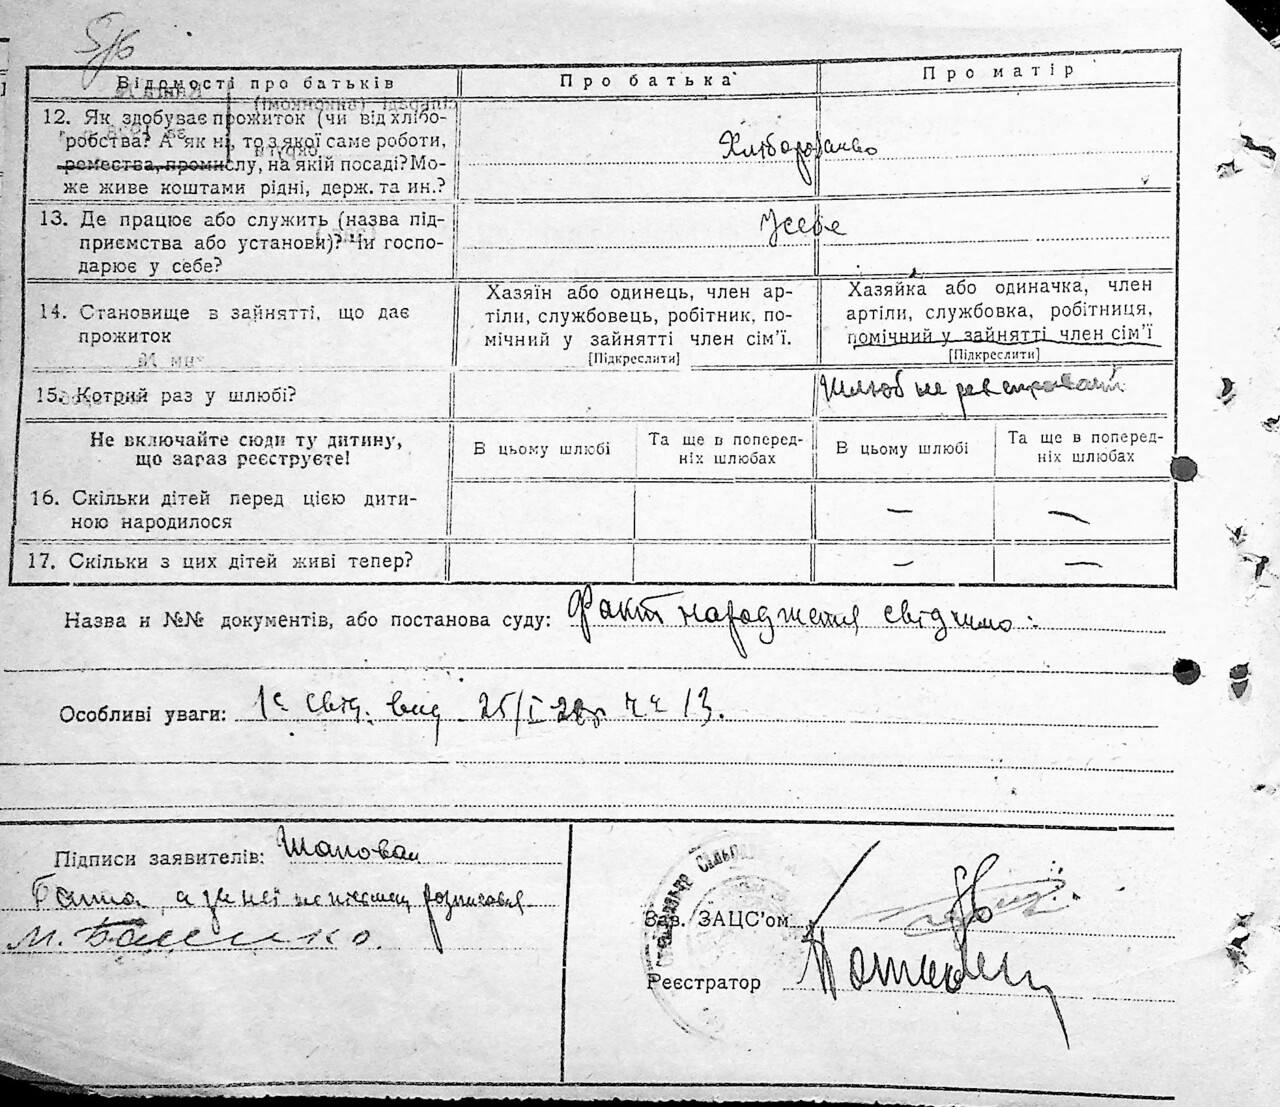 5/6
Відомості про батьків
Про батька
Про матір
12. Як здобуває прожиток (чи від хлібо-
робства? А як ні, то з якої саме роботи,
ремества, промислу, на якій посаді? Мо-
же живе коштами рідні, держ. та ин.?
Хліборобство
13. Де працює або служить (назва під-
приємства або установи)? Чи госпо-
дарює у себе?
У себе
14. Становище в зайнятті, що дає
прожиток
Хазяїн або одинець, член ар-
тілі, службовець, робітник, по-
мічний у зайнятті член сім'ї.
[Підкреслити]
Хазяйка або одиначка, член
артілі, службовка, робітниця,
помічний у зайнятті член сім'ї
[Підкреслити]
15. Котрий раз у шлюбі?
Шлюб не
Не включайте сюди ту дитину,
що зараз реєструєте!
В цьому шлюбі
Та ще в поперед-
ніх шлюбах
В цьому шлюбі
Та ще в поперед-
ніх шлюбах
16. Скільки дітей перед цією дити-
ною народилося
— —
17. Скільки з цих дітей живі тепер?
— —
Назва и №№ документів, або постанова суду: Факт народження свідчимо:
Особливі уваги: свід. вид. 25/I-28р. 13.
Підписи заявителів: Шаповал
а за неї
М. Баленко.
Зав. ЗАЦС'ом
Реєстратор